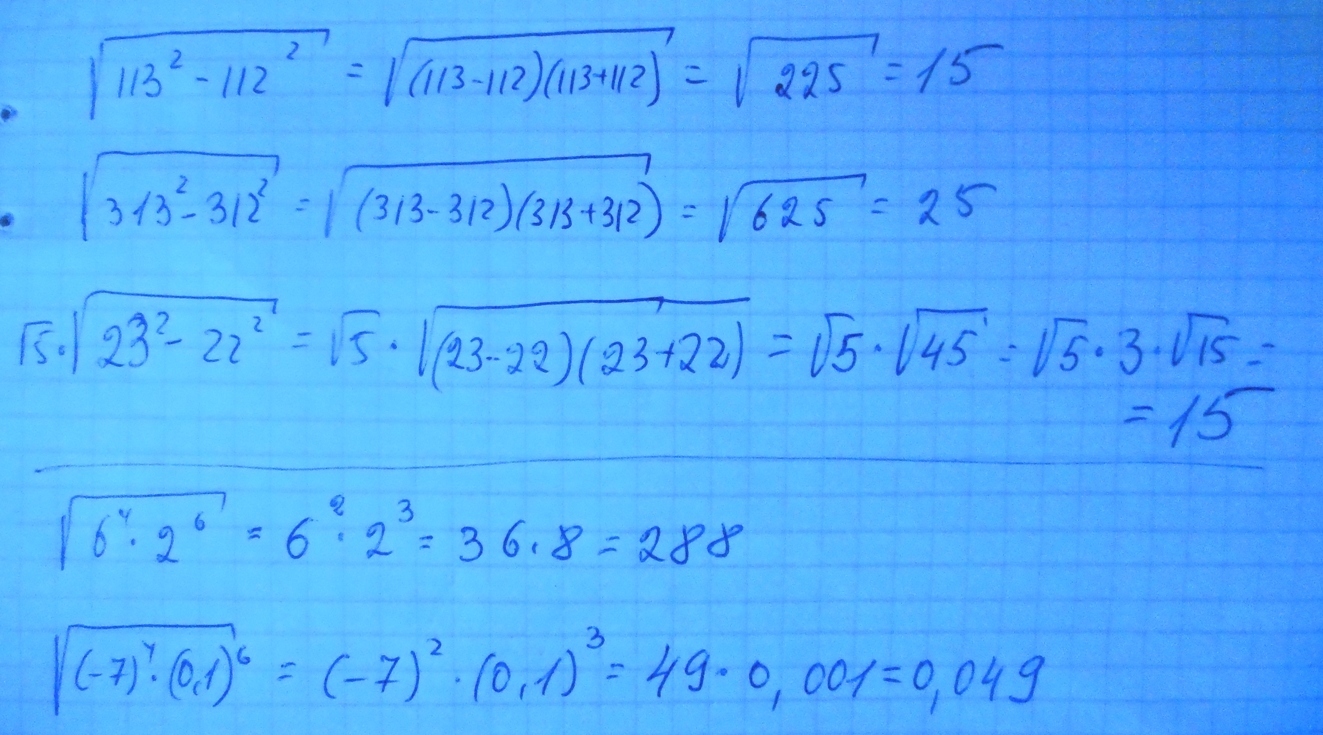 √(113² - 112²) = √((113-112)(113+112)) = √225 = 15
√(313² - 312²) = √((313-312)(313+312)) = √625 = 25
√5·√(23² - 22²) = √5·√((23-22)(23+22)) = √5·√45 = √5·3·√15 =
= 15
√(6⁴·2⁶) = 6²·2³ = 36·8 = 288
√((-7)⁴·(0,1)⁶) = (-7)²·(0,1)³ = 49·0,001=0,049